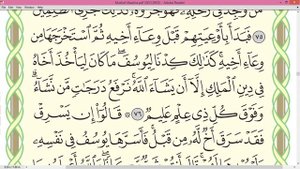 فَبَدَأَ بِأَوْعِيَتِهِمْ قَبْلَ وِعَآءِ أَخِيهِ ثُمَّ ٱسْتَخْرَجَهَا مِن
وِعَآءِ أَخِيهِ كَذَٰلِكَ كِدْنَا لِيُوسُفَ مَا كَانَ لِيَأْخُذَ أَخَاهُ
فِى دِينِ ٱلْمَلِكِ إِلَّآ أَن يَشَآءَ ٱللَّهُ نَرْفَعُ دَرَجَٰتٍ مَّن نَّشَآءُ
وَفَوْقَ كُلِّ ذِى عِلْمٍ عَلِيمٌ ٧٦ قَالُوٓا۟ إِن يَسْرِقْ
فَقَدْ سَرَقَ أَخٌ لَّهُۥ مِن قَبْلُ فَأَسَرَّهَا يُوسُفُ فِى نَفْسِهِۦ